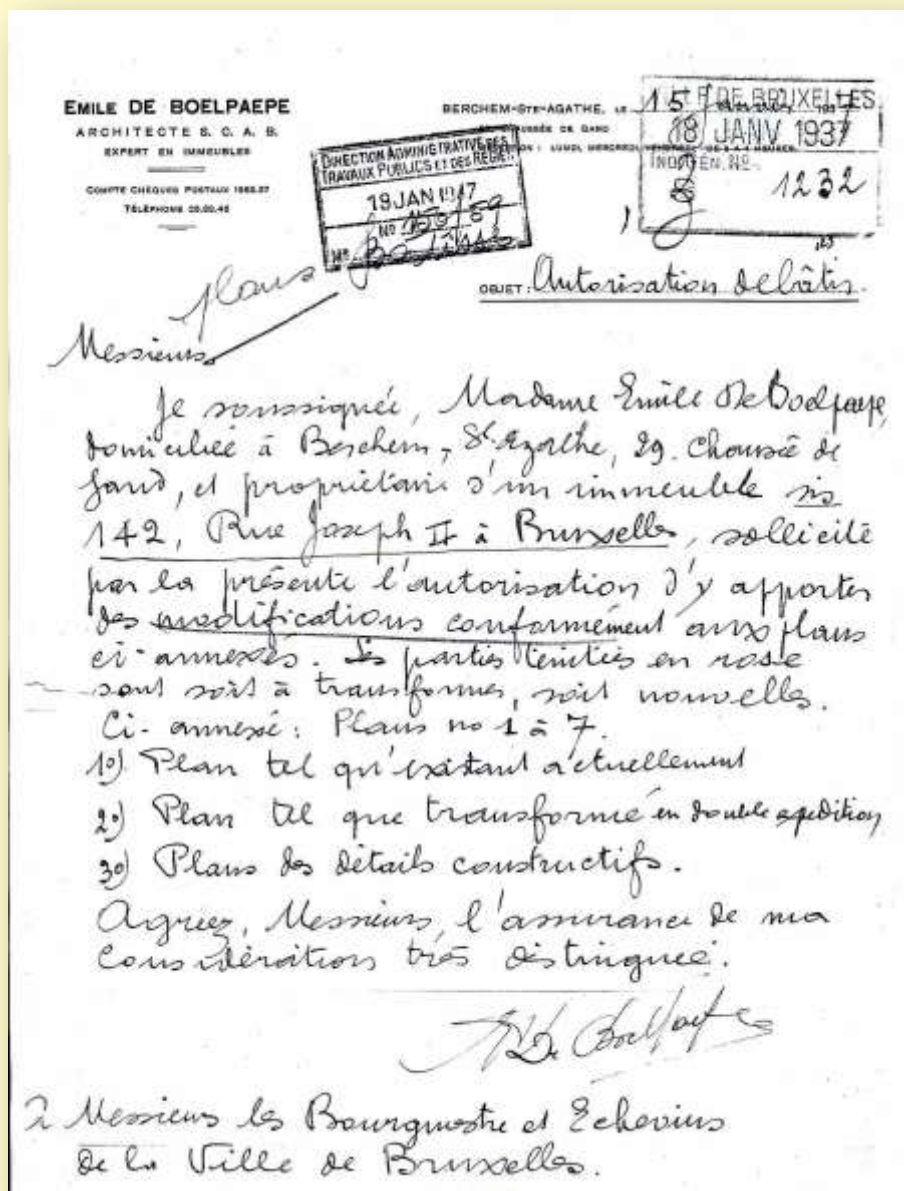 EMILE DE BOELPAEPE
ARCHITECTE S. C. A. B.
EXPERT EN IMMEUBLES
COMPTE CHÈQUES POSTAUX
TÉLÉPHONE
BERCHEM-STE-AGATHE, LE 15
CHAUSSÉE DE GAND
LUNDI, MERCREDI, VENDREDI, DE 2 A 4 HEURES
DE BRUXELLES
18 JANV 1937
1232
DIRECTION ADMINISTRATIVE DES
TRAVAUX PUBLICS ET DES RÉGIES
19 JAN
No
plans
OBJET: Autorisation de bâtir.
Messieurs,
Je soussignée, Madame Emile De Boelpaepe,
domiciliée à Berchem-St-Agathe, 29. Chaussée de
Gand, et propriétaire d'un immeuble sis
142, Rue Joseph II à Bruxelles, sollicité
par la présente l'autorisation d'y apporter
des modifications conformément aux plans
ci-annexés. Les parties teintées en rose
sont soit à transformer, soit nouvelles.
Ci-annexé: Plans no 1 à 7.
1o) Plan tel qu'existant actuellement
2o) Plan tel que transformé en double expédition
3o) Plans des détails constructifs.
Agréez, Messieurs, l'assurance de ma
Considération très distinguée.
De Boelpaepe
Messieurs les Bourgmestre et Echevins
de la Ville de Bruxelles.